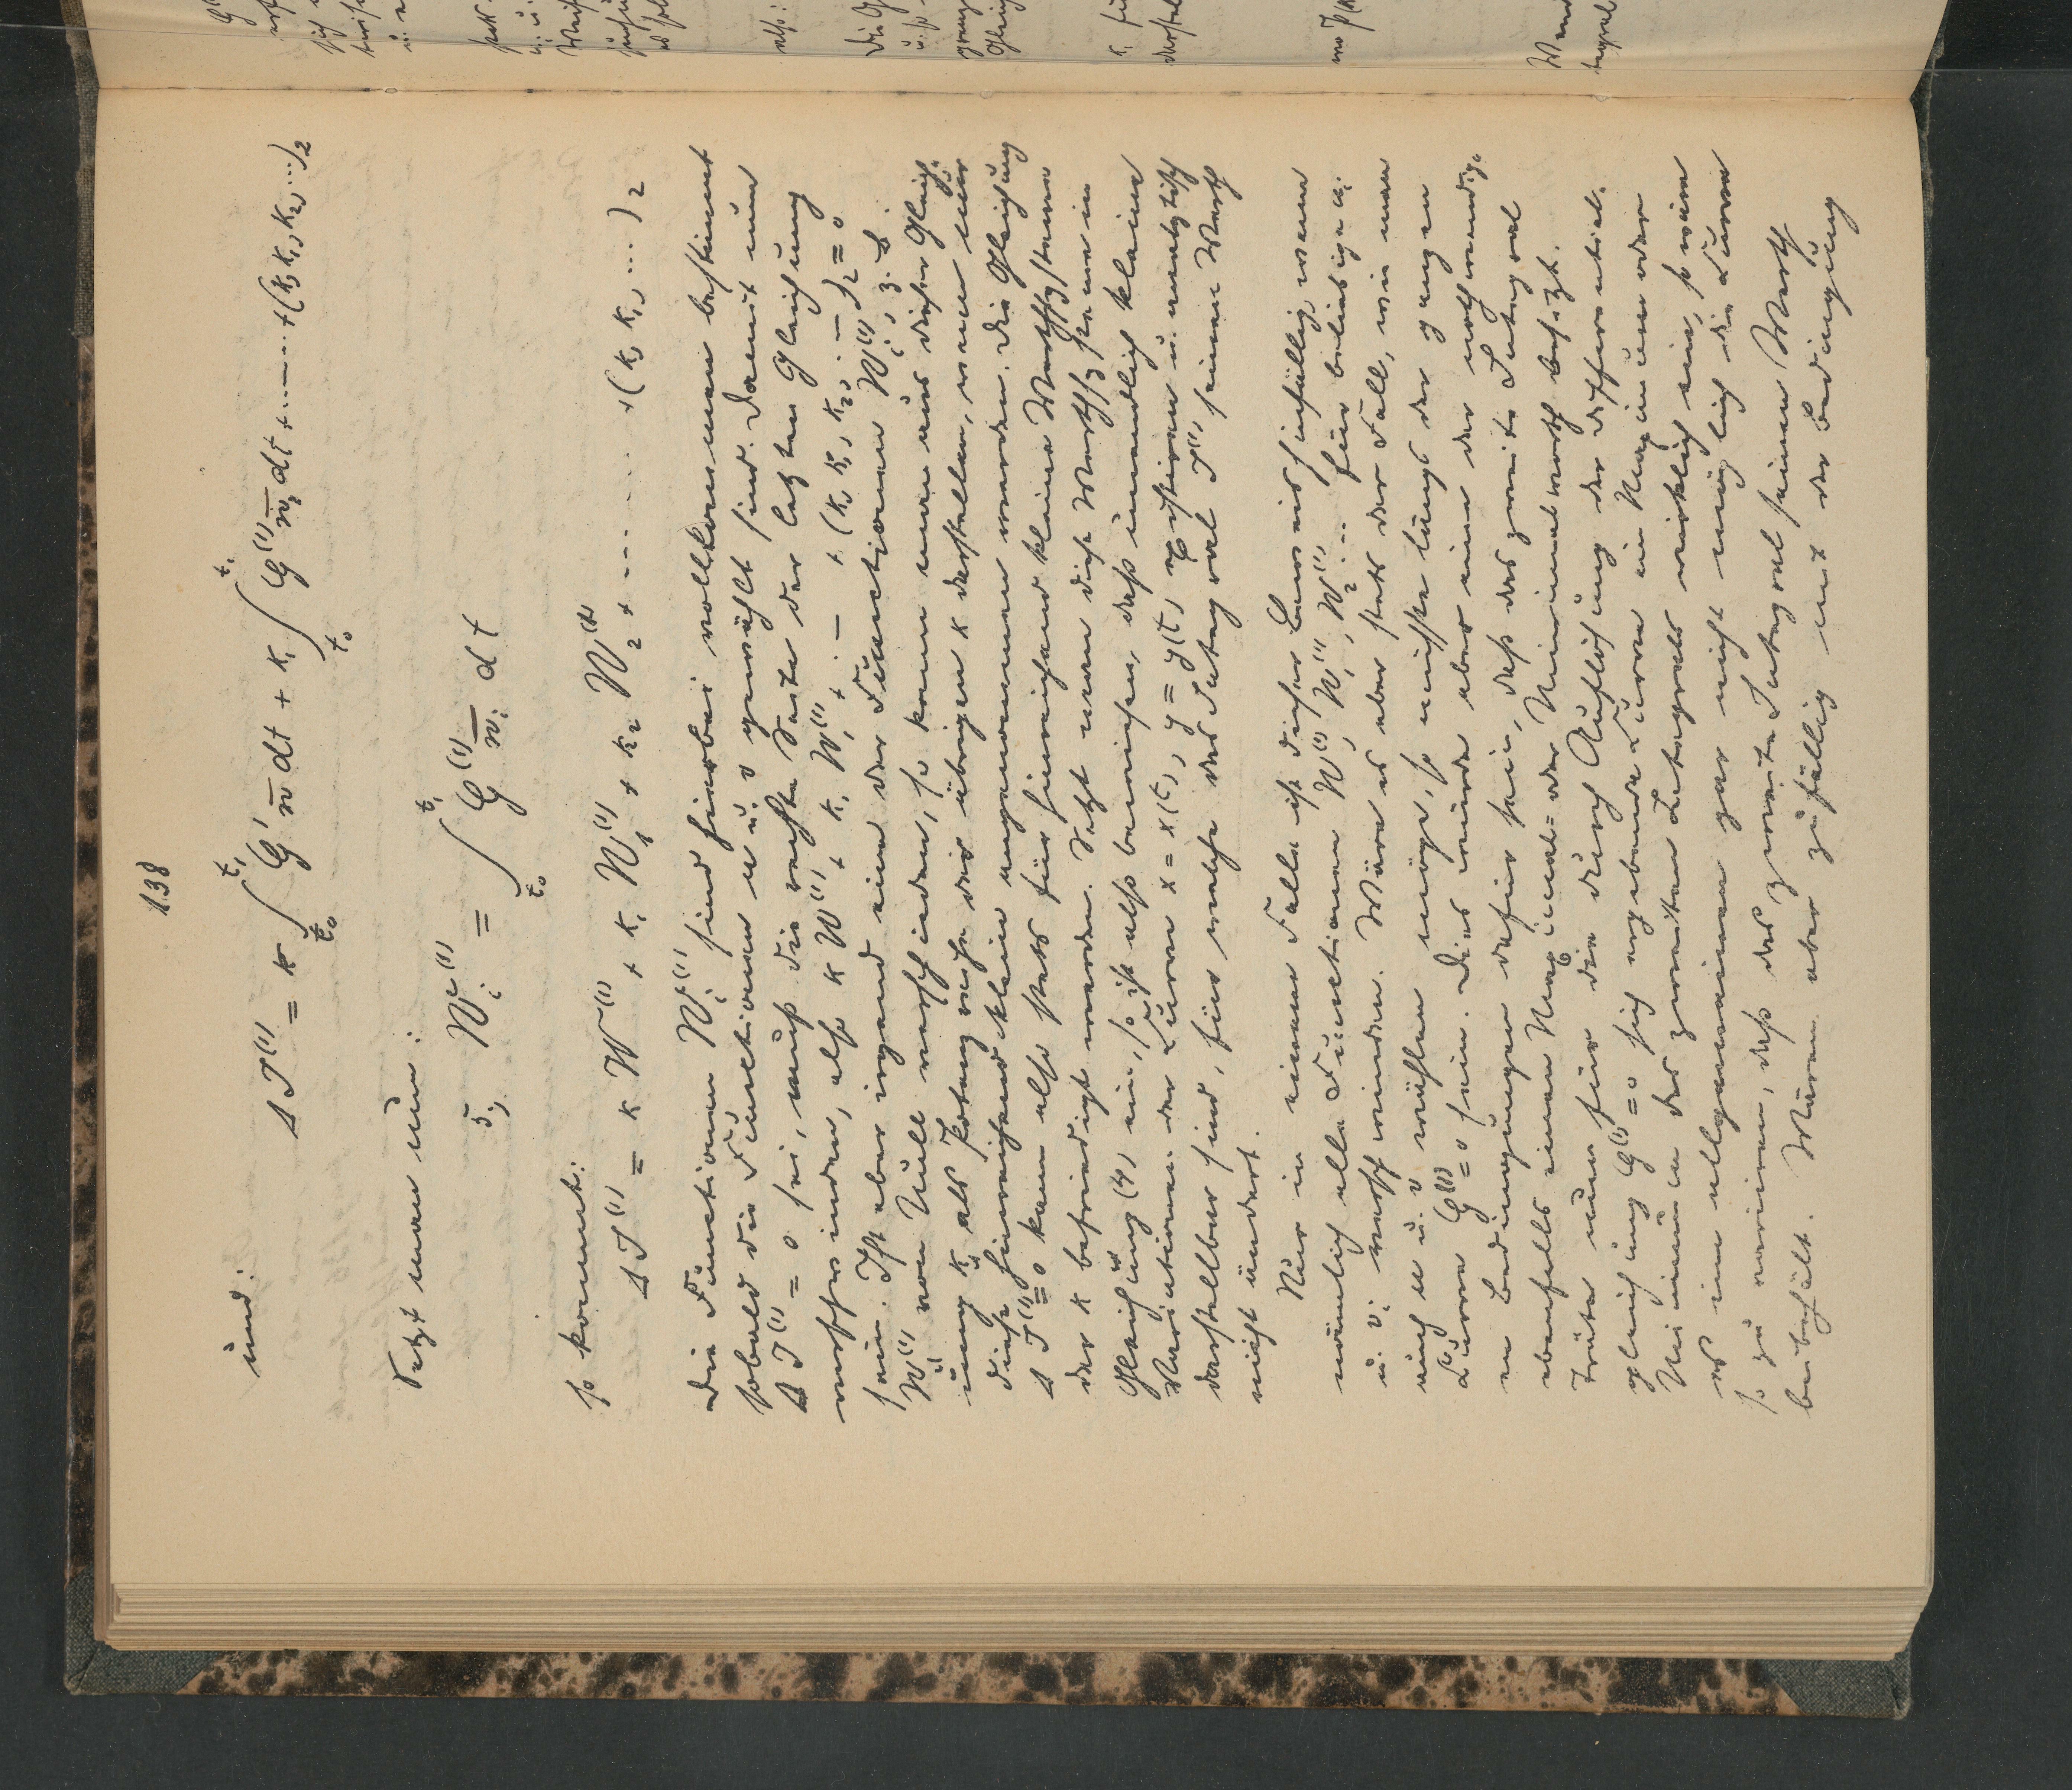 138
und:
Δ J⁽¹⁾ = k ∫_{t₀}^{t₁} G' \overline{w} dt + k₁ ∫_{t₀}^{t₁} G⁽¹⁾ \overline{w}₁ dt + ..... + (k, k₁, k₂, ...)₂
Setzt man nun:
5.) W_i⁽¹⁾ = ∫_{t₀}^{t₁} G⁽¹⁾ \overline{w}_i dt
so kommt:
Δ J⁽¹⁾ = k W⁽¹⁾ + k₁ W₁⁽¹⁾ + k₂ W₂⁽¹⁾ + ........ + (k, k₁, ...)₂
Die Functionen W_i⁽¹⁾ sind hierbei vollkommen bestimmt
sobald die Functionen u u. v gewählt sind. Damit nun
Δ J⁽¹⁾ = 0 sei, muß die rechte Seite der letzten Gleichung
verschwinden, also k W⁽¹⁾ + k₁ W₁⁽¹⁾ + ... + (k, k₁, k₂, ...)₂ = 0
sein. Ist aber irgend eine der Functionen W_i⁽¹⁾, z. B.
W⁽¹⁾ von Null verschieden, so kann man aus dieser Gleich-
ung k als Potenzreihe der übrigen k darstellen, wenn nur
diese hinreichend klein angenommen werden. Die Gleichung
Δ J⁽¹⁾ = 0 kann also stets für hinreichend kleine Werthsysteme
der k befriedigt werden. Setzt man diese Werthsysteme in
Gleichung (4) ein, so ist also bewiesen, daß unendlich kleine
Variationen der Curve x = x(t), y = y(t) existiren u. analytisch
darstellbar sind, für welche das Integral J⁽¹⁾ seinen Werth
nicht ändert.
Nur in einem Falle ist dieser Beweis hinfällig, wenn
nämlich alle Functionen W⁽¹⁾, W₁⁽¹⁾, W₂⁽¹⁾ ... für beliebige u_i
u. v_i verschwinden. Wäre es aber stets der Fall, wie man
auch u u. v wählen möge, so müßte längs der ganzen
Curve G⁽¹⁾ = 0 sein. Dies würde aber eine der nothwendig-
en Bedingungen dafür sein, daß das zweite Integral
ebenfalls einen Maximal- oder Minimalwerth besizt.
Träte nun für die durch Auflösung der Differential-
gleichung G⁽¹⁾ = 0 sich ergebende Curve ein Maximum oder
Minimum des zweiten Integrals wirklich ein, so wäre
es im allgemeinen gar nicht möglich die Curve
so zu variiren, daß das zweite Integral seinen Werth
beibehält. Wären aber zufällig mit der Bedingung